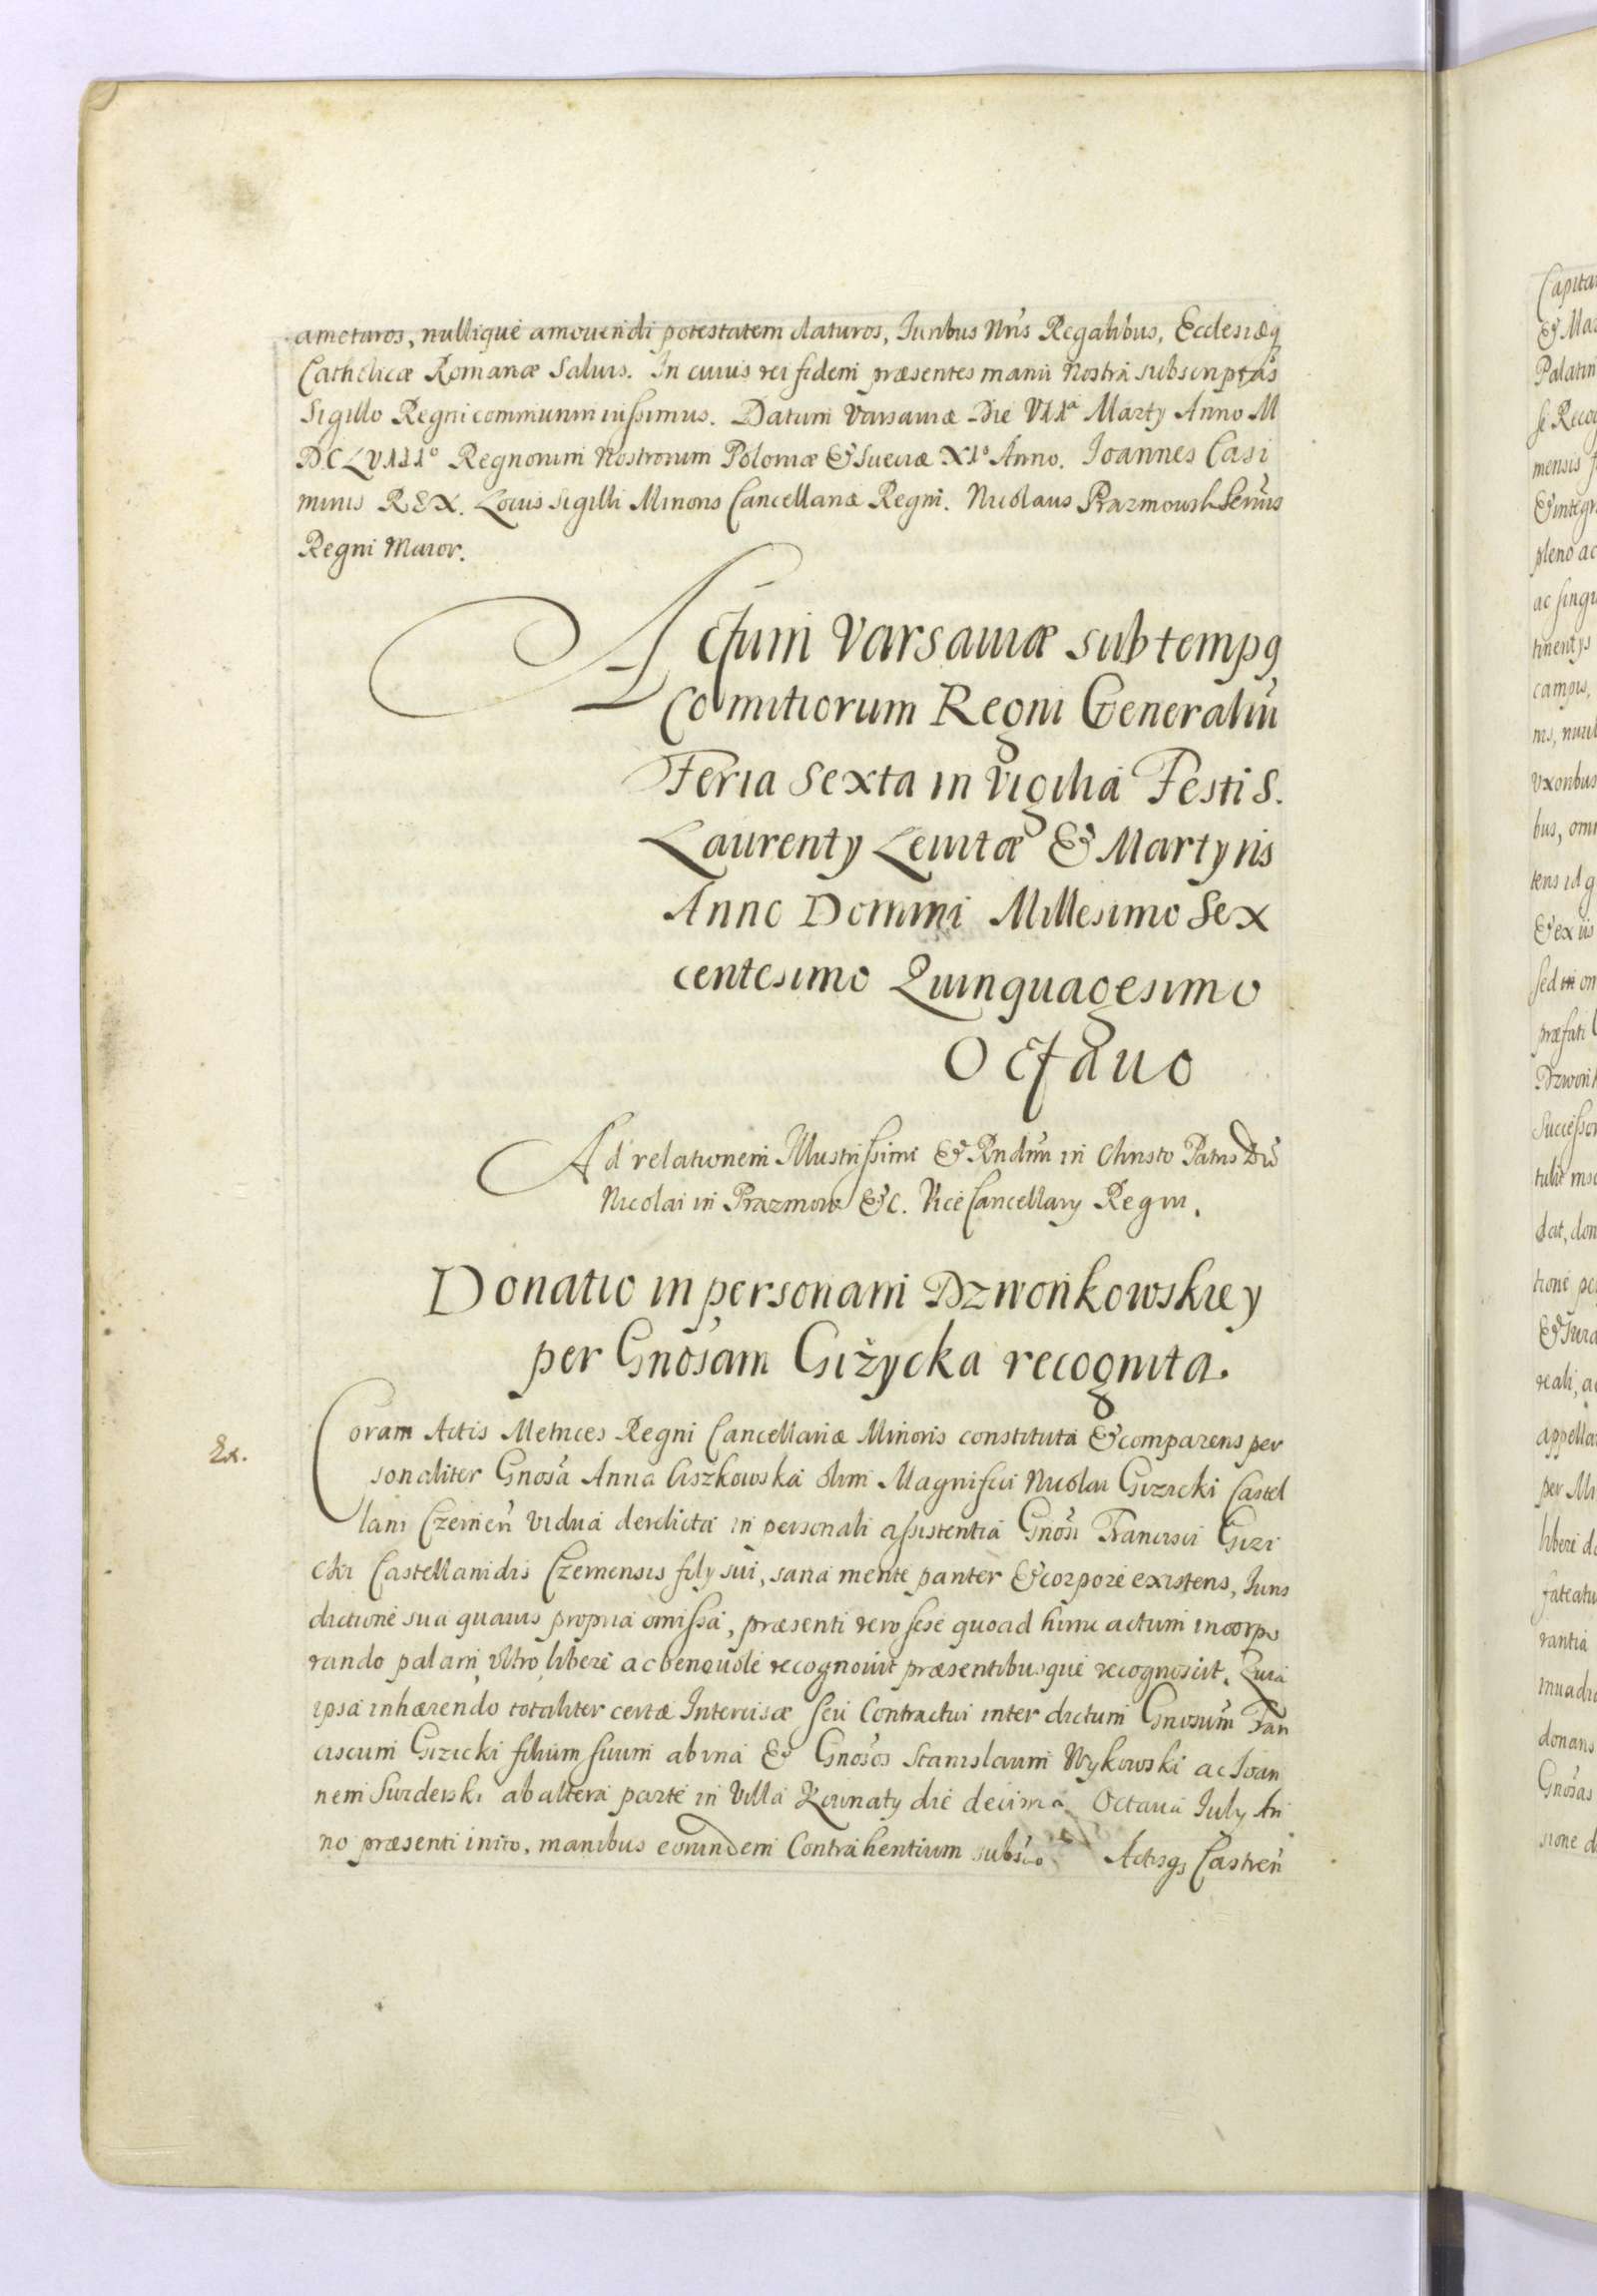 amoturos, nullique amouendi potestatem daturos, Iuribus Nr̃is Regalibus, Ecclesiæq
Catholicæ Romanæ Saluis. In cuius rei fidem præsentes manu Nostrâ subscriptas
Sigillo Regni communiri iussimus. Datum Varsauiæ Die VIIª Martÿ Anno M
DCLVIIIº Regnorum Nostrorum Poloniæ & Sueciæ XIº Anno. Ioannes Casi
mirus REX. Locus Sigilli Minoris Cancellariæ Regni. Nicolaus Prazmowski
Regni Maior.
Actum Varsauiæ sub tempq
Comitiorum Regni Generaliũ
Feria Sexta in Vigiliâ Festi S.
Laurentÿ Leuitæ & Martyris
Anno Domini Millesimo Sex
centesimo Quinquagesimo
Octauo
Ad relationem Illustrissimi & Rndĩm in Christo Patris Dñi
Nicolai in Prazmow &c. Vice Cancellarÿ Regni.
Donatio in personam Dzwonkowskiey
per Gnõsam Giżycka recognita.
Ex.
Coram Actis Metrices Regni Cancellariæ Minoris constituta & comparens per
sonaliter Gnõsa Anna Ciszkowska olim Magnifici Nicolai Gizicki Castel
lani Czernen̄ vidua derelicta in personali assistentia Gnõsi Francisci Gizi
cki Castellanidis Czernensis filÿ sui, sana mente pariter & corpore existens, Iuris
dictione sua quauis propria omissâ, præsenti vero sese quoad hunc actum incorpo
rando palam, vltro, libere ac beneuole recognouit præsentibusque recognoscit. Quia
ipsa inhærendo totaliter certæ Intercisæ seu Contractui inter dictum Gnosum̃ Fran
ciscum Gizicki filium suum ab vna & Gnõsos Stanislaum Wykowski ac Ioan
nem Suiderski ab altera parte in Villa Kurinaty die decima Octaua Iulÿ An
no præsenti inito, manibus eorundem Contrahentium Actisq, Castren̄